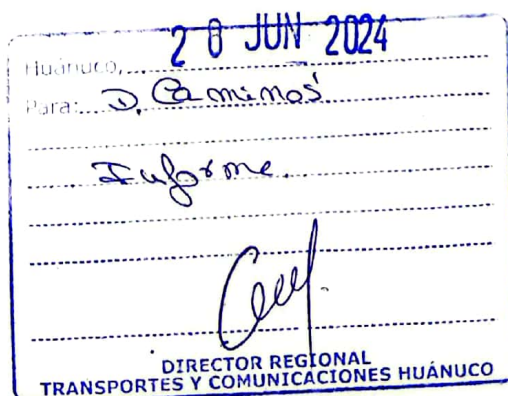 Huánuco, 28 JUN 2024
Para: D. Caminos
Informe.
DIRECTOR REGIONAL
TRANSPORTES Y COMUNICACIONES HUÁNUCO